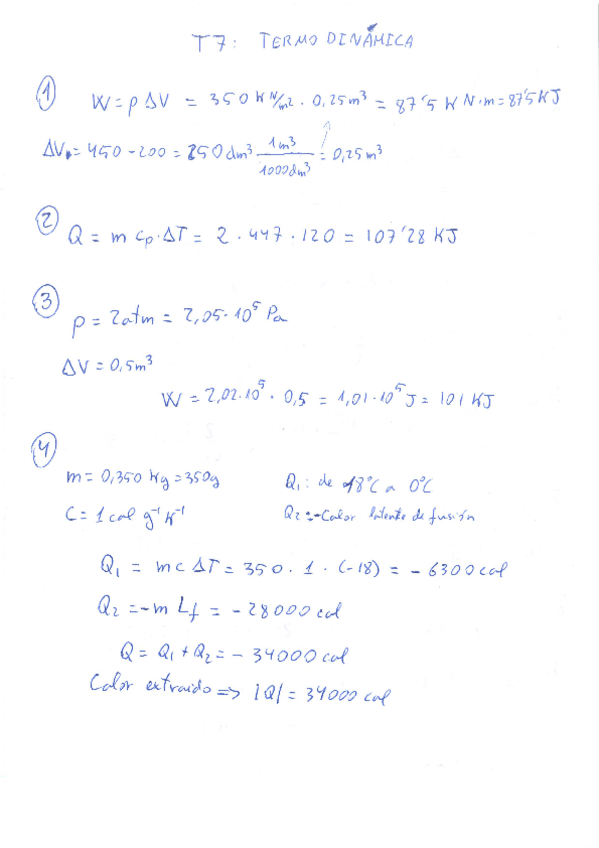 T7: TERMODINÁMICA
① W = p ΔV = 350 KN/m² · 0,25 m³ = 87'5 KN·m = 87'5 KJ
ΔV = 450 - 200 = 250 dm³ · 1m³/1000dm³ = 0,25 m³
② Q = m cp · ΔT = 2 · 447 · 120 = 107'28 KJ
③ p = 2 atm = 2,05 · 10⁵ Pa
ΔV = 0,5 m³
W = 2,02 · 10⁵ · 0,5 = 1,01 · 10⁵ J = 101 KJ
④
m = 0,350 Kg = 350g Q₁: de 18°C a 0°C
C = 1 cal g⁻¹ K⁻¹ Q₂ = -Calor latente de fusión
Q₁ = m c ΔT = 350 · 1 · (-18) = - 6300 cal
Q₂ = -m Lf = - 28000 cal
Q = Q₁ + Q₂ = - 34000 cal
Calor extraido => |Q| = 34000 cal